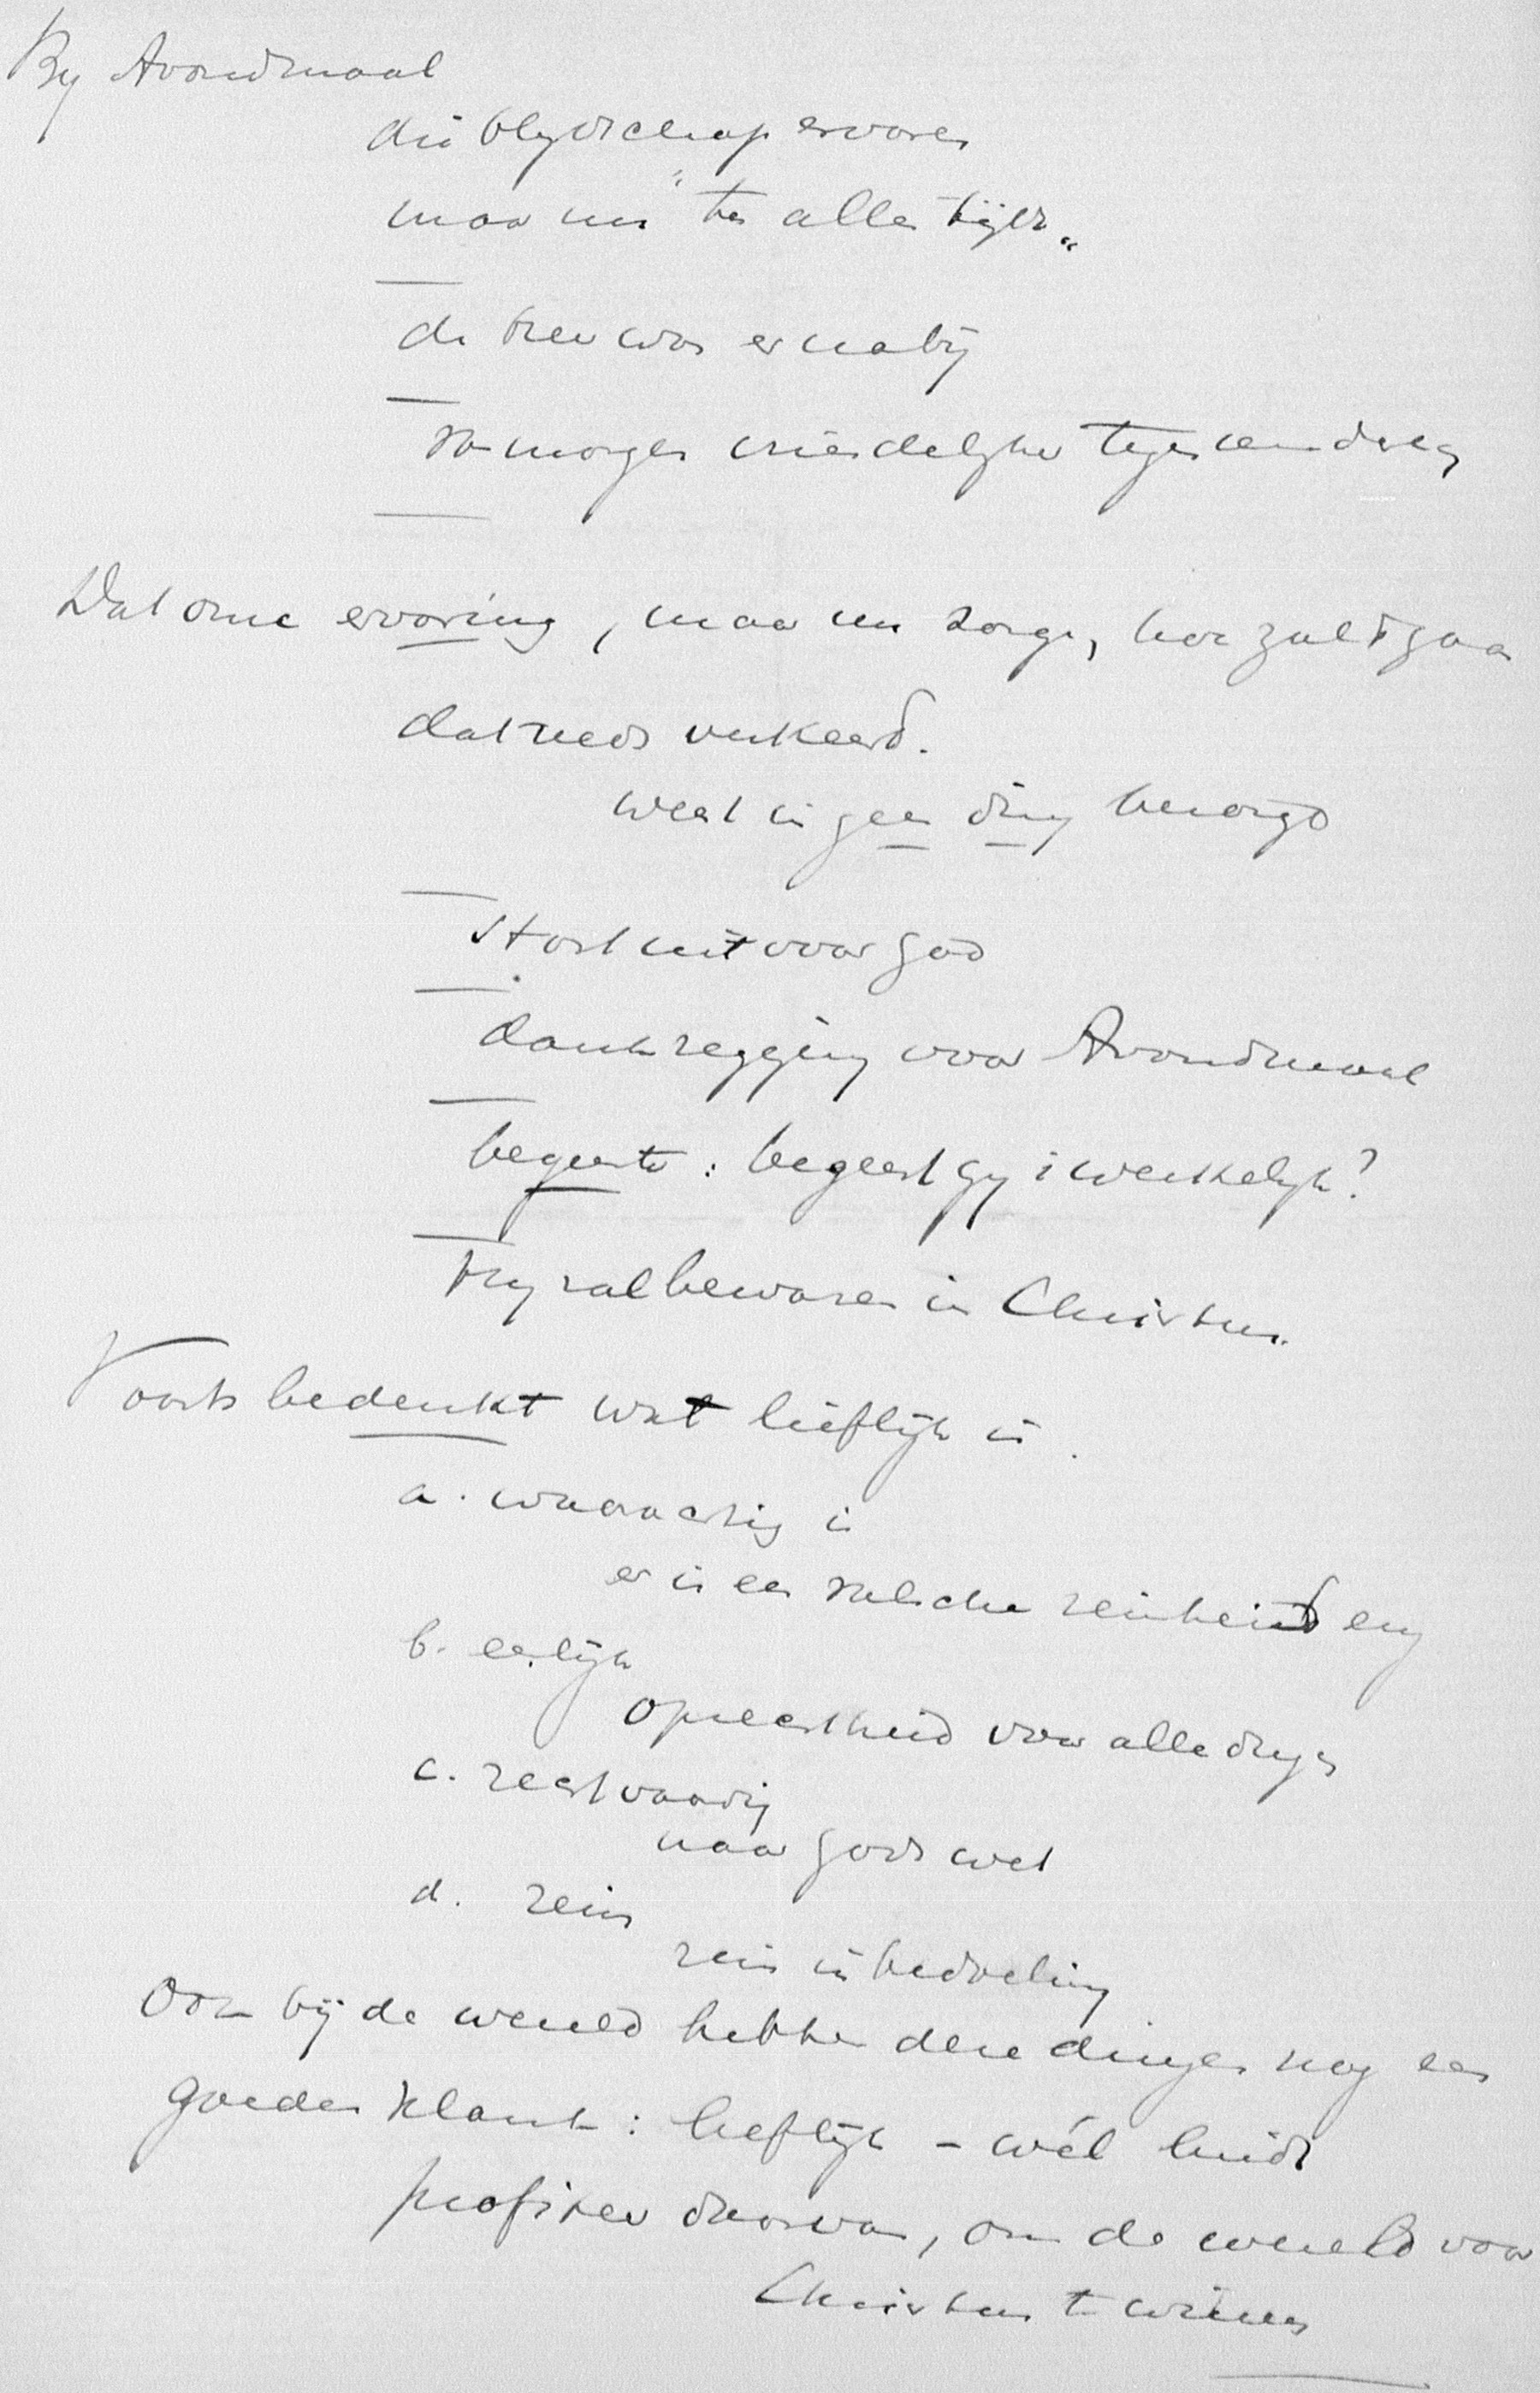 By Avondmaal
die blydschap ervaren
maar nu "ten allen tijde"
de Heer was er nabij
van morgen vriendelyker tegen
Dat onze ervaring, maar nu zorgen, hoe zal 't gaan
dat reeds verkeerd.
weest in geen ding bezorgd
stort uit voor God
dankzegging voor Avondmaal
begeerte: begeert gy 't werkelyk?
Hy zal bewaren in Christus.
Voorts bedenkt wat lieflijk is.
a. waarachtig is
er is een valsche reinheid
b. eerlijk
oprechtheid voor alle dingen
c. rechtvaardig
naar Gods wet
d. rein
rein in bedoeling
Ook bij de wereld hebben deze dingen nog een
goeden klank: lieflijk - wél luidt
profiteer daarvan, om de wereld voor
Christus te winnen